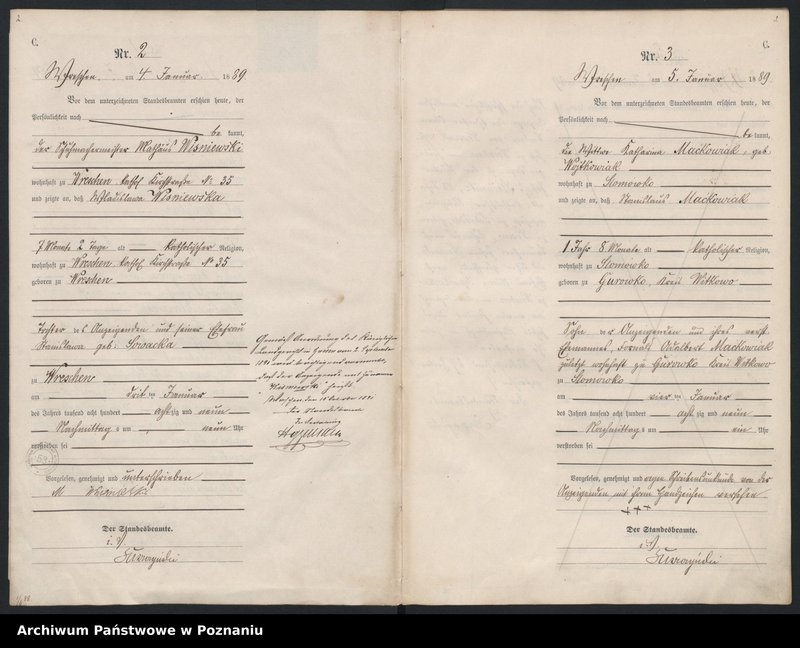 2
C.
Nr. 2
Wreschen, am 4. Januar 1889
Vor dem unterzeichneten Standesbeamten erschien heute, der
Persönlichkeit nach
bekannt,
der Schuhmachermeister Mathäus Wisniewski
wohnhaft zu Wreschen, kathol. Kirchstraße No 35
und zeigte an, daß Wladislawa Wisniewska
7 Monate 2 Tage alt katholischer Religion,
wohnhaft zu Wreschen, kathol. Kirchstraße No 35
geboren zu Wreschen
Tochter des Anzeigenden und seiner Ehefrau
Stanislawa geb:
zu Wreschen
am drei ten Januar
des Jahres tausend acht hundert achtzig und neun
Nachmittags um neun Uhr
verstorben sei
Vorgelesen, genehmigt und unterschrieben
M
Der Standesbeamte.
i. V.
Gemäß Anordnung des Königlichen
Landgerichts in Gnesen vom
1891 wird
daß der Anzeigende mit Zunamen
heißt
Wreschen, den
Der Standesbeamte
In Vertretung
3
C.
Nr. 3
Wreschen am 5. Januar 1889
Vor dem unterzeichneten Standesbeamten erschien heute, der
Persönlichkeit nach
bekannt,
die Wittwe Katharina Maćkowiak, geb.
Wojtkowiak
wohnhaft zu Slomowko
und zeigte an, daß Stanislaus Maćkowiak
1 Jahr 8 Monate alt katholischer Religion,
wohnhaft zu Slomówko
geboren zu Gurowko, Kreis Witkowo
Sohn der Anzeigenden und ihres verst.
Ehemannes, Adalbert Maćkowiak
zuletzt wohnhaft zu Gurowko Kreis Witkowo
zu Slomowko
am vier ten Januar
des Jahres tausend acht hundert achtzig und neun
Nachmittags um ein Uhr
verstorben sei
Vorgelesen, genehmigt und wegen Schreibensunkunde von der
Anzeigenden mit ihrem Handzeichen versehen
+++
Der Standesbeamte.
i. V.
Archiwum Państwowe w Poznaniu